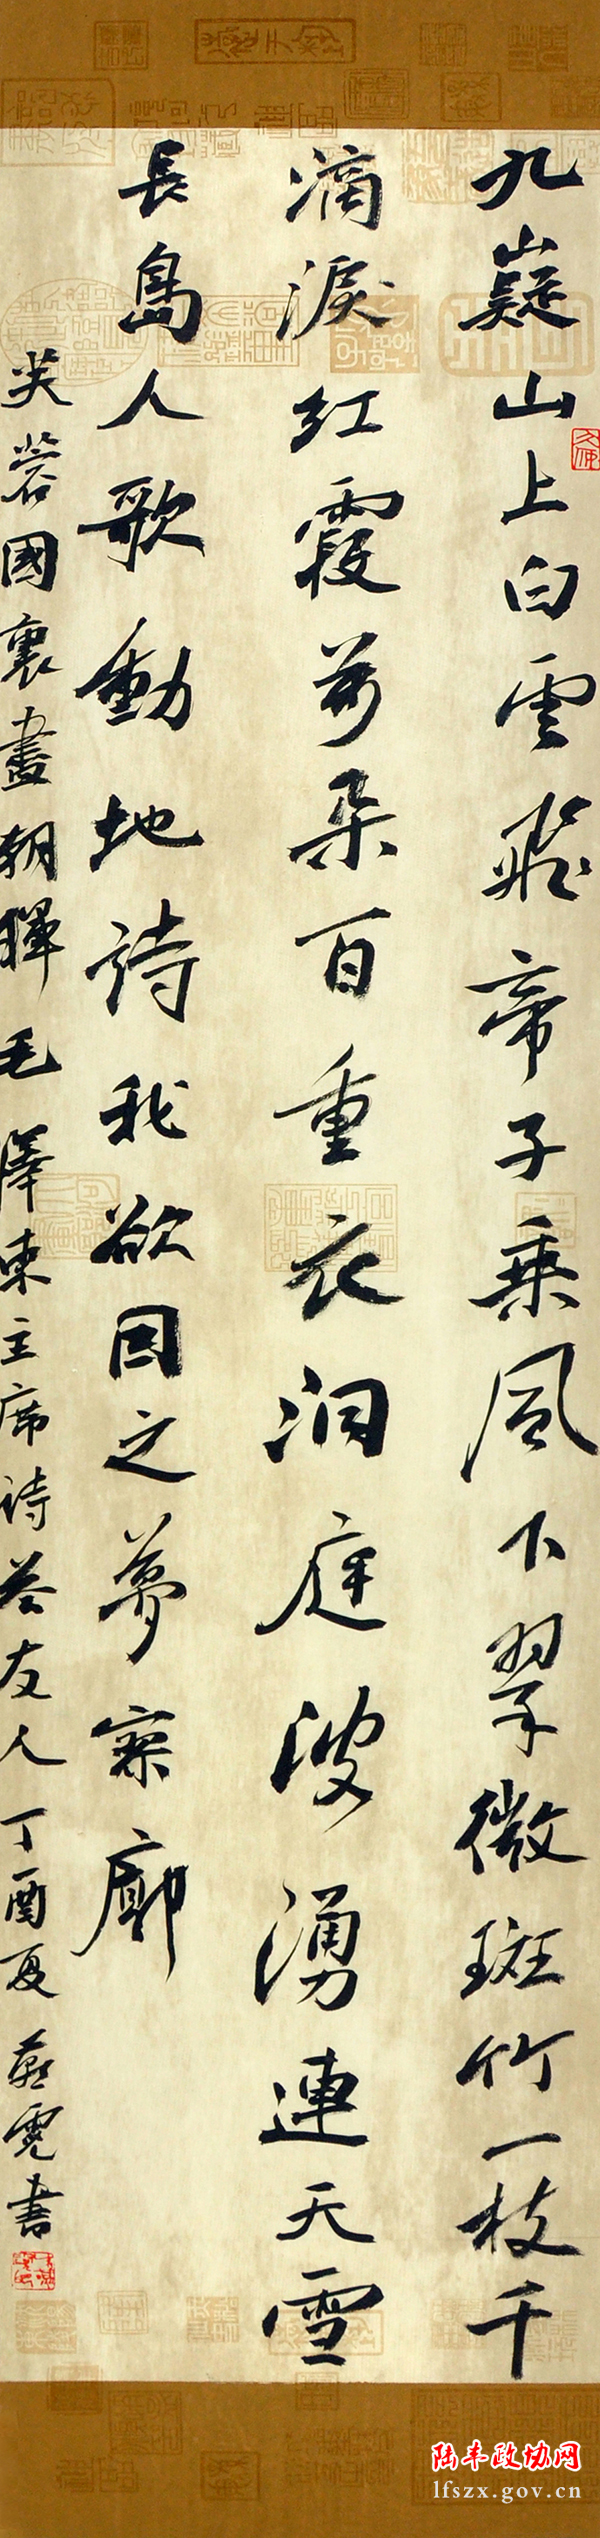 九嶷山上白雲飛帝子乘風下翠微斑竹一枝千
滴淚紅霞萬朵百重衣洞庭波湧連天雪
長島人歌動地詩我欲因之夢寥廓
芙蓉國裏盡朝暉 毛澤東主席詩答友人 丁酉夏 燕霓書
陆丰政协网
lfszx.gov.cn